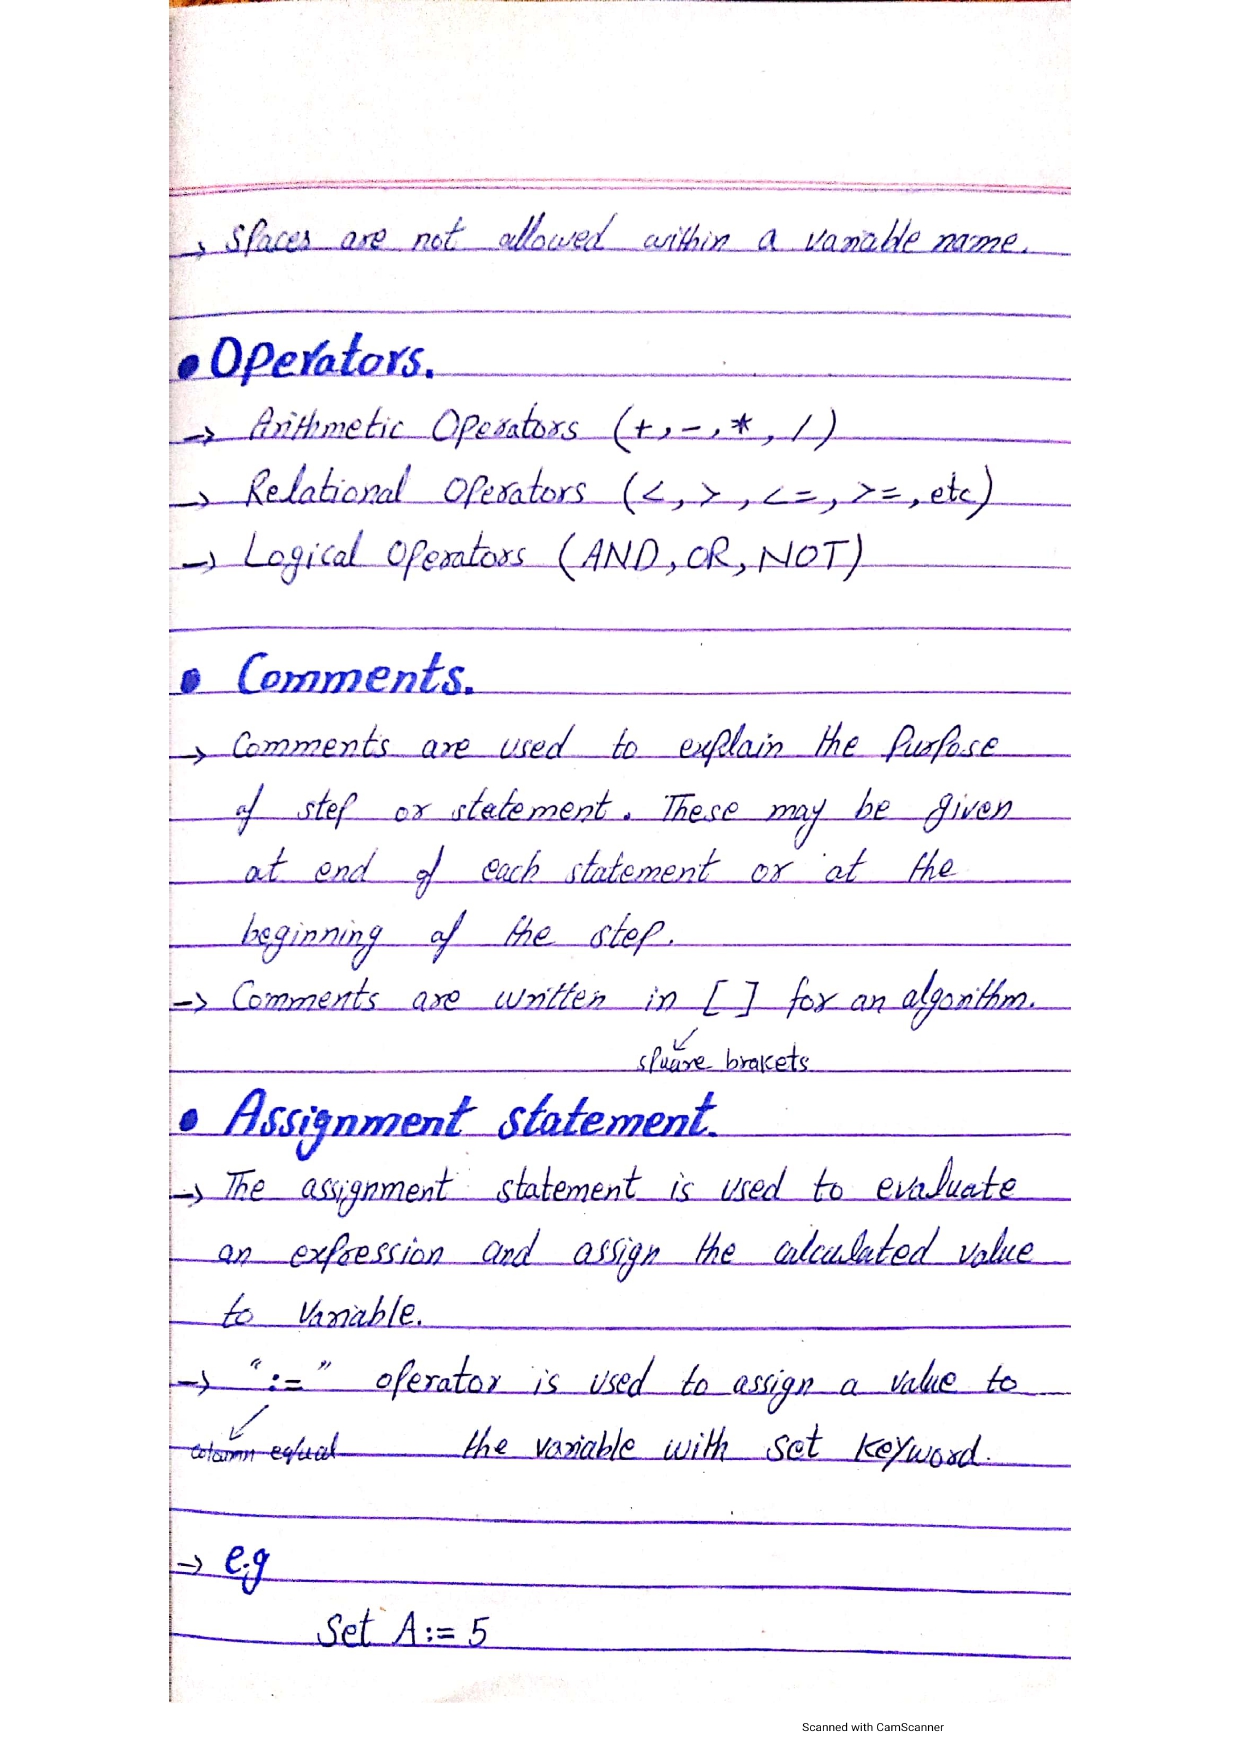 → Spaces are not allowed within a variable name.
• Operators.
→ Arithmetic Operators (+, -, *, /)
→ Relational Operators (<, >, <=, >=, etc)
→ Logical Operators (AND, OR, NOT)
• Comments.
→ Comments are used to explain the Purpose
of step or statement. These may be given
at end of each statement or at the
beginning of the step.
→ Comments are written in [ ] for an algorithm.
square brakets
• Assignment statement.
→ The assignment statement is used to evaluate
an expression and assign the calculated value
to variable.
→ ":=" operator is used to assign a value to
column equal the variable with set keyword.
→ e.g
Set A:= 5
Scanned with CamScanner